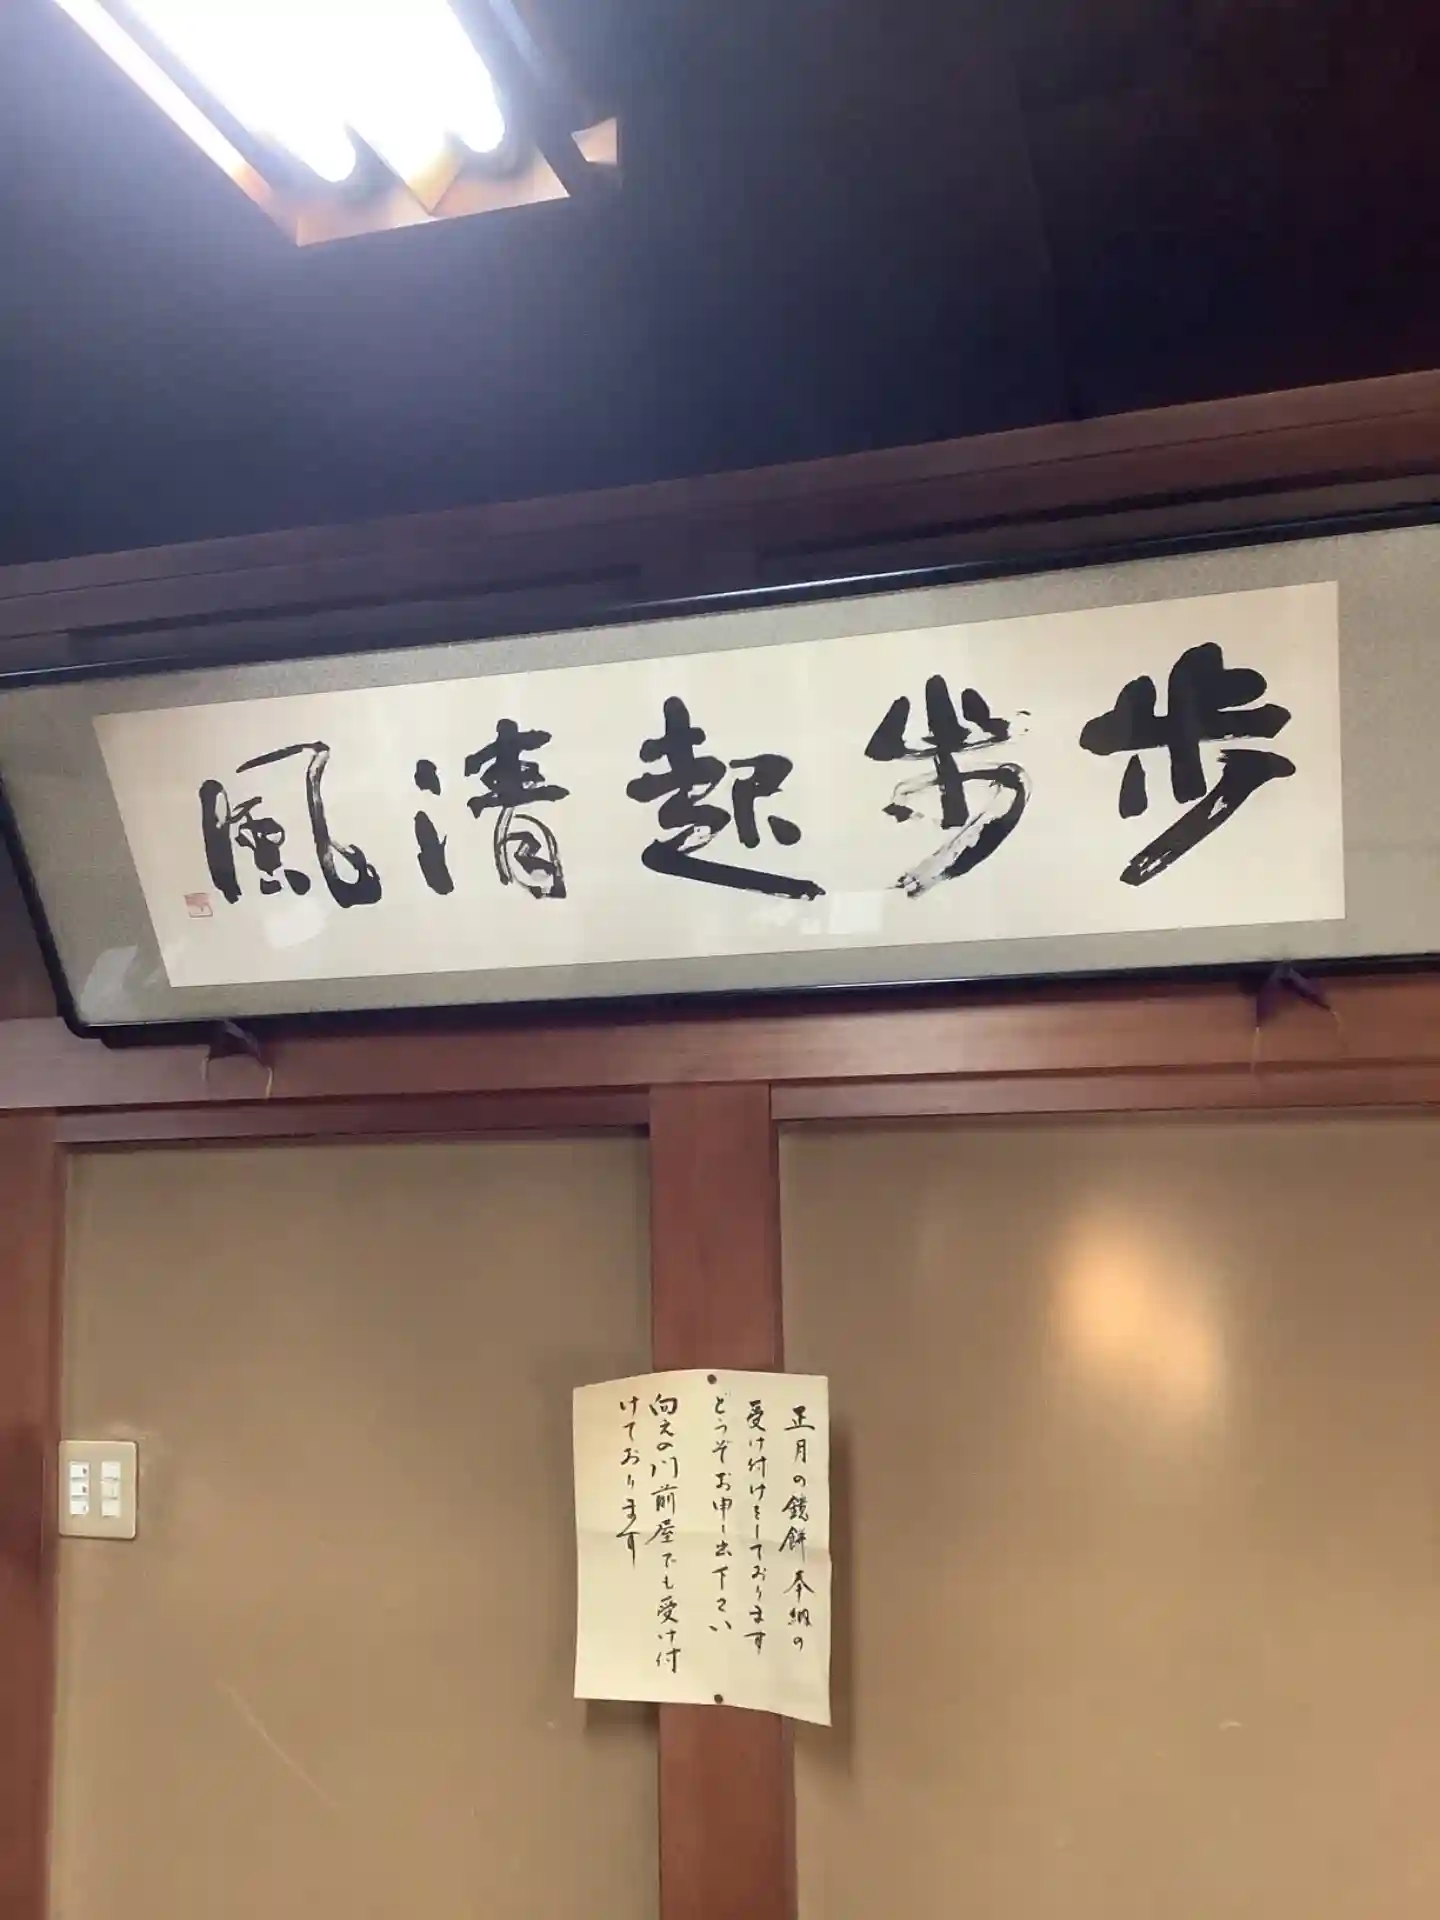 歩歩起清風
正月の鏡餅奉納の
受け付けをしております
どうぞお申し出下さい
向えの川前屋でも受け付
けております